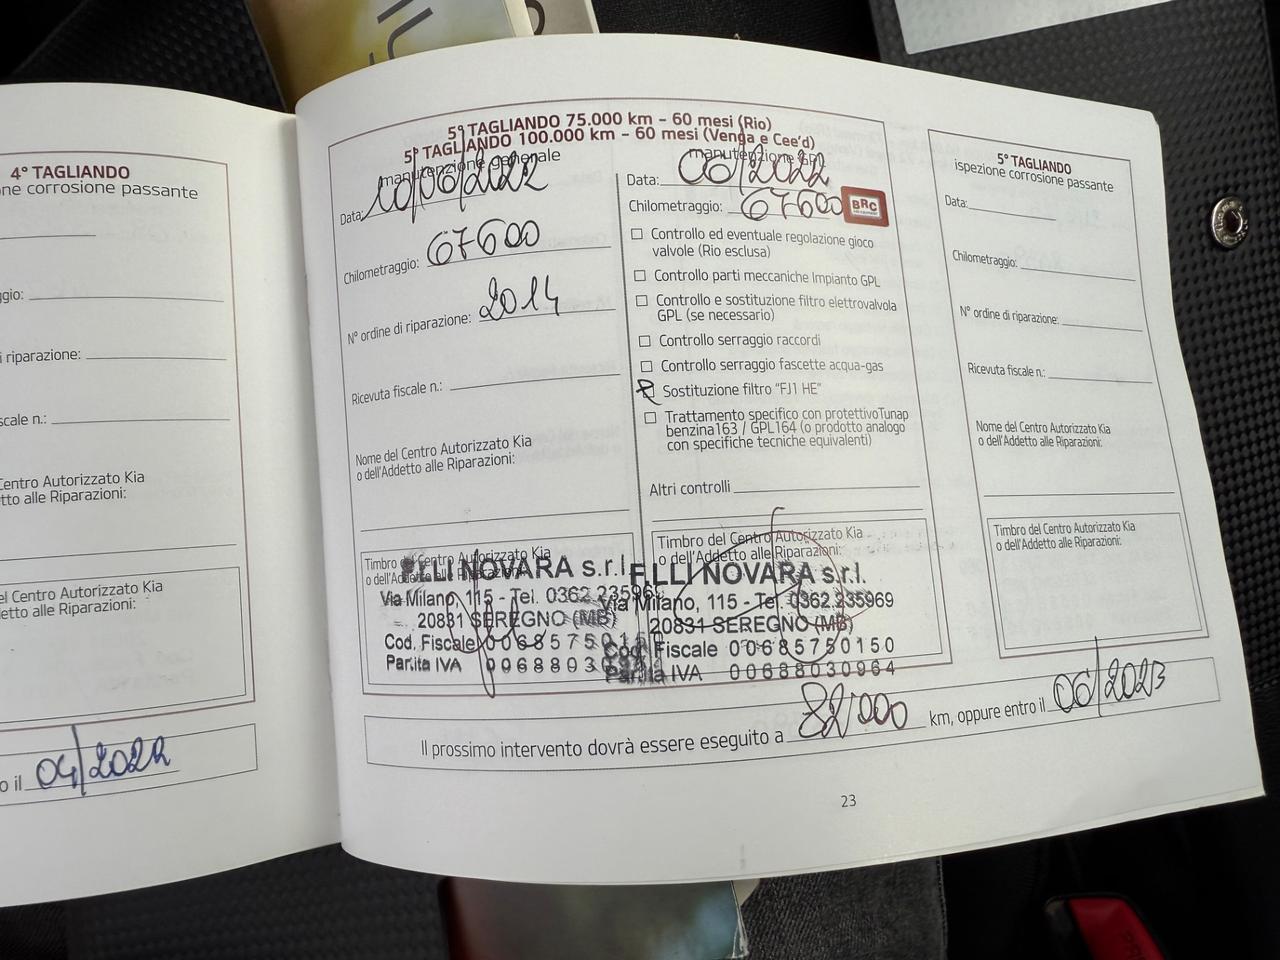 4° TAGLIANDO
ne corrosione passante
gio:
i riparazione:
scale n.:
el Centro Autorizzato Kia
etto alle Riparazioni:
el Centro Autorizzato Kia
detto alle Riparazioni:
o il 04/2022
5° TAGLIANDO 75.000 km – 60 mesi (Rio)
5° TAGLIANDO 100.000 km – 60 mesi (Venga e Cee'd)
manutenzione generale
Data: 10/06/2022
Chilometraggio: 67600
N° ordine di riparazione: 2014
Ricevuta fiscale n.:
Nome del Centro Autorizzato Kia
o dell'Addetto alle Riparazioni:
Timbro del Centro Autorizzato Kia
o dell'Addetto alle Riparazioni:
F.LLI NOVARA s.r.l.
Via Milano, 115 - Tel. 0362 235969
20831 SEREGNO (MB)
Cod. Fiscale 00685750150
Partita IVA 0068803
manutenzione GPL
Data: 06/2022
Chilometraggio: 67600
BRC
Controllo ed eventuale regolazione gioco
valvole (Rio esclusa)
Controllo parti meccaniche Impianto GPL
Controllo e sostituzione filtro elettrovalvola
GPL (se necessario)
Controllo serraggio raccordi
Controllo serraggio fascette acqua-gas
Sostituzione filtro "FJ1 HE"
Trattamento specifico con protettivo Tunap
benzina163 / GPL164 (o prodotto analogo
con specifiche tecniche equivalenti)
Altri controlli
Timbro del Centro Autorizzato Kia
o dell'Addetto alle Riparazioni:
F.LLI NOVARA s.r.l.
Via Milano, 115 - Tel. 0362.235969
20831 SEREGNO (MB)
Cod. Fiscale 00685750150
Partita IVA 00688030964
5° TAGLIANDO
ispezione corrosione passante
Data:
Chilometraggio:
N° ordine di riparazione:
Ricevuta fiscale n.:
Nome del Centro Autorizzato Kia
o dell'Addetto alle Riparazioni:
Timbro del Centro Autorizzato Kia
o dell'Addetto alle Riparazioni:
Il prossimo intervento dovrà essere eseguito a 82'000 km, oppure entro il 06/2023
23